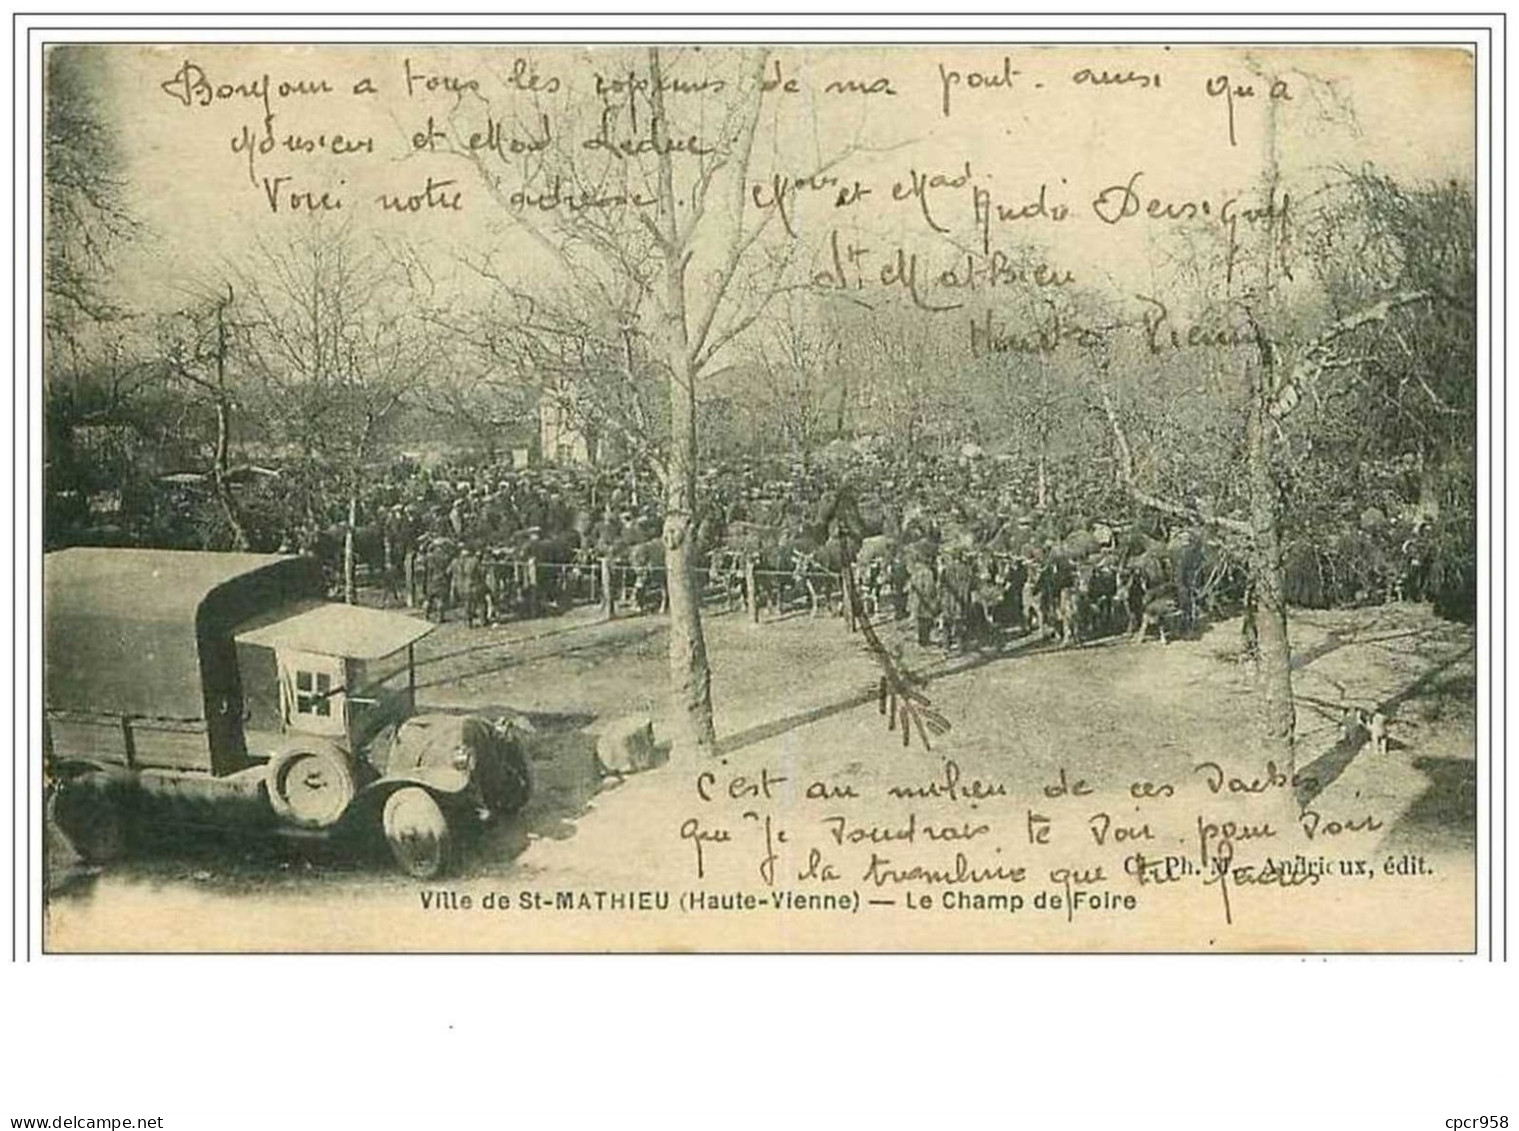 Bonjour a tous les copains de ma part. ausi qu'a
Monsieur et Mad Leduc.
Voici notre adresse. Mour et Mad André
St Mathieu
Haute Vienne
C'est au milieu de ces vaches
que Je voudrais te voir pour voir
la trombine que tu ferais
Cl. Ph. M. Andrieux, édit.
Ville de St-MATHIEU (Haute-Vienne) — Le Champ de Foire
www.delcampe.net
cpcr958